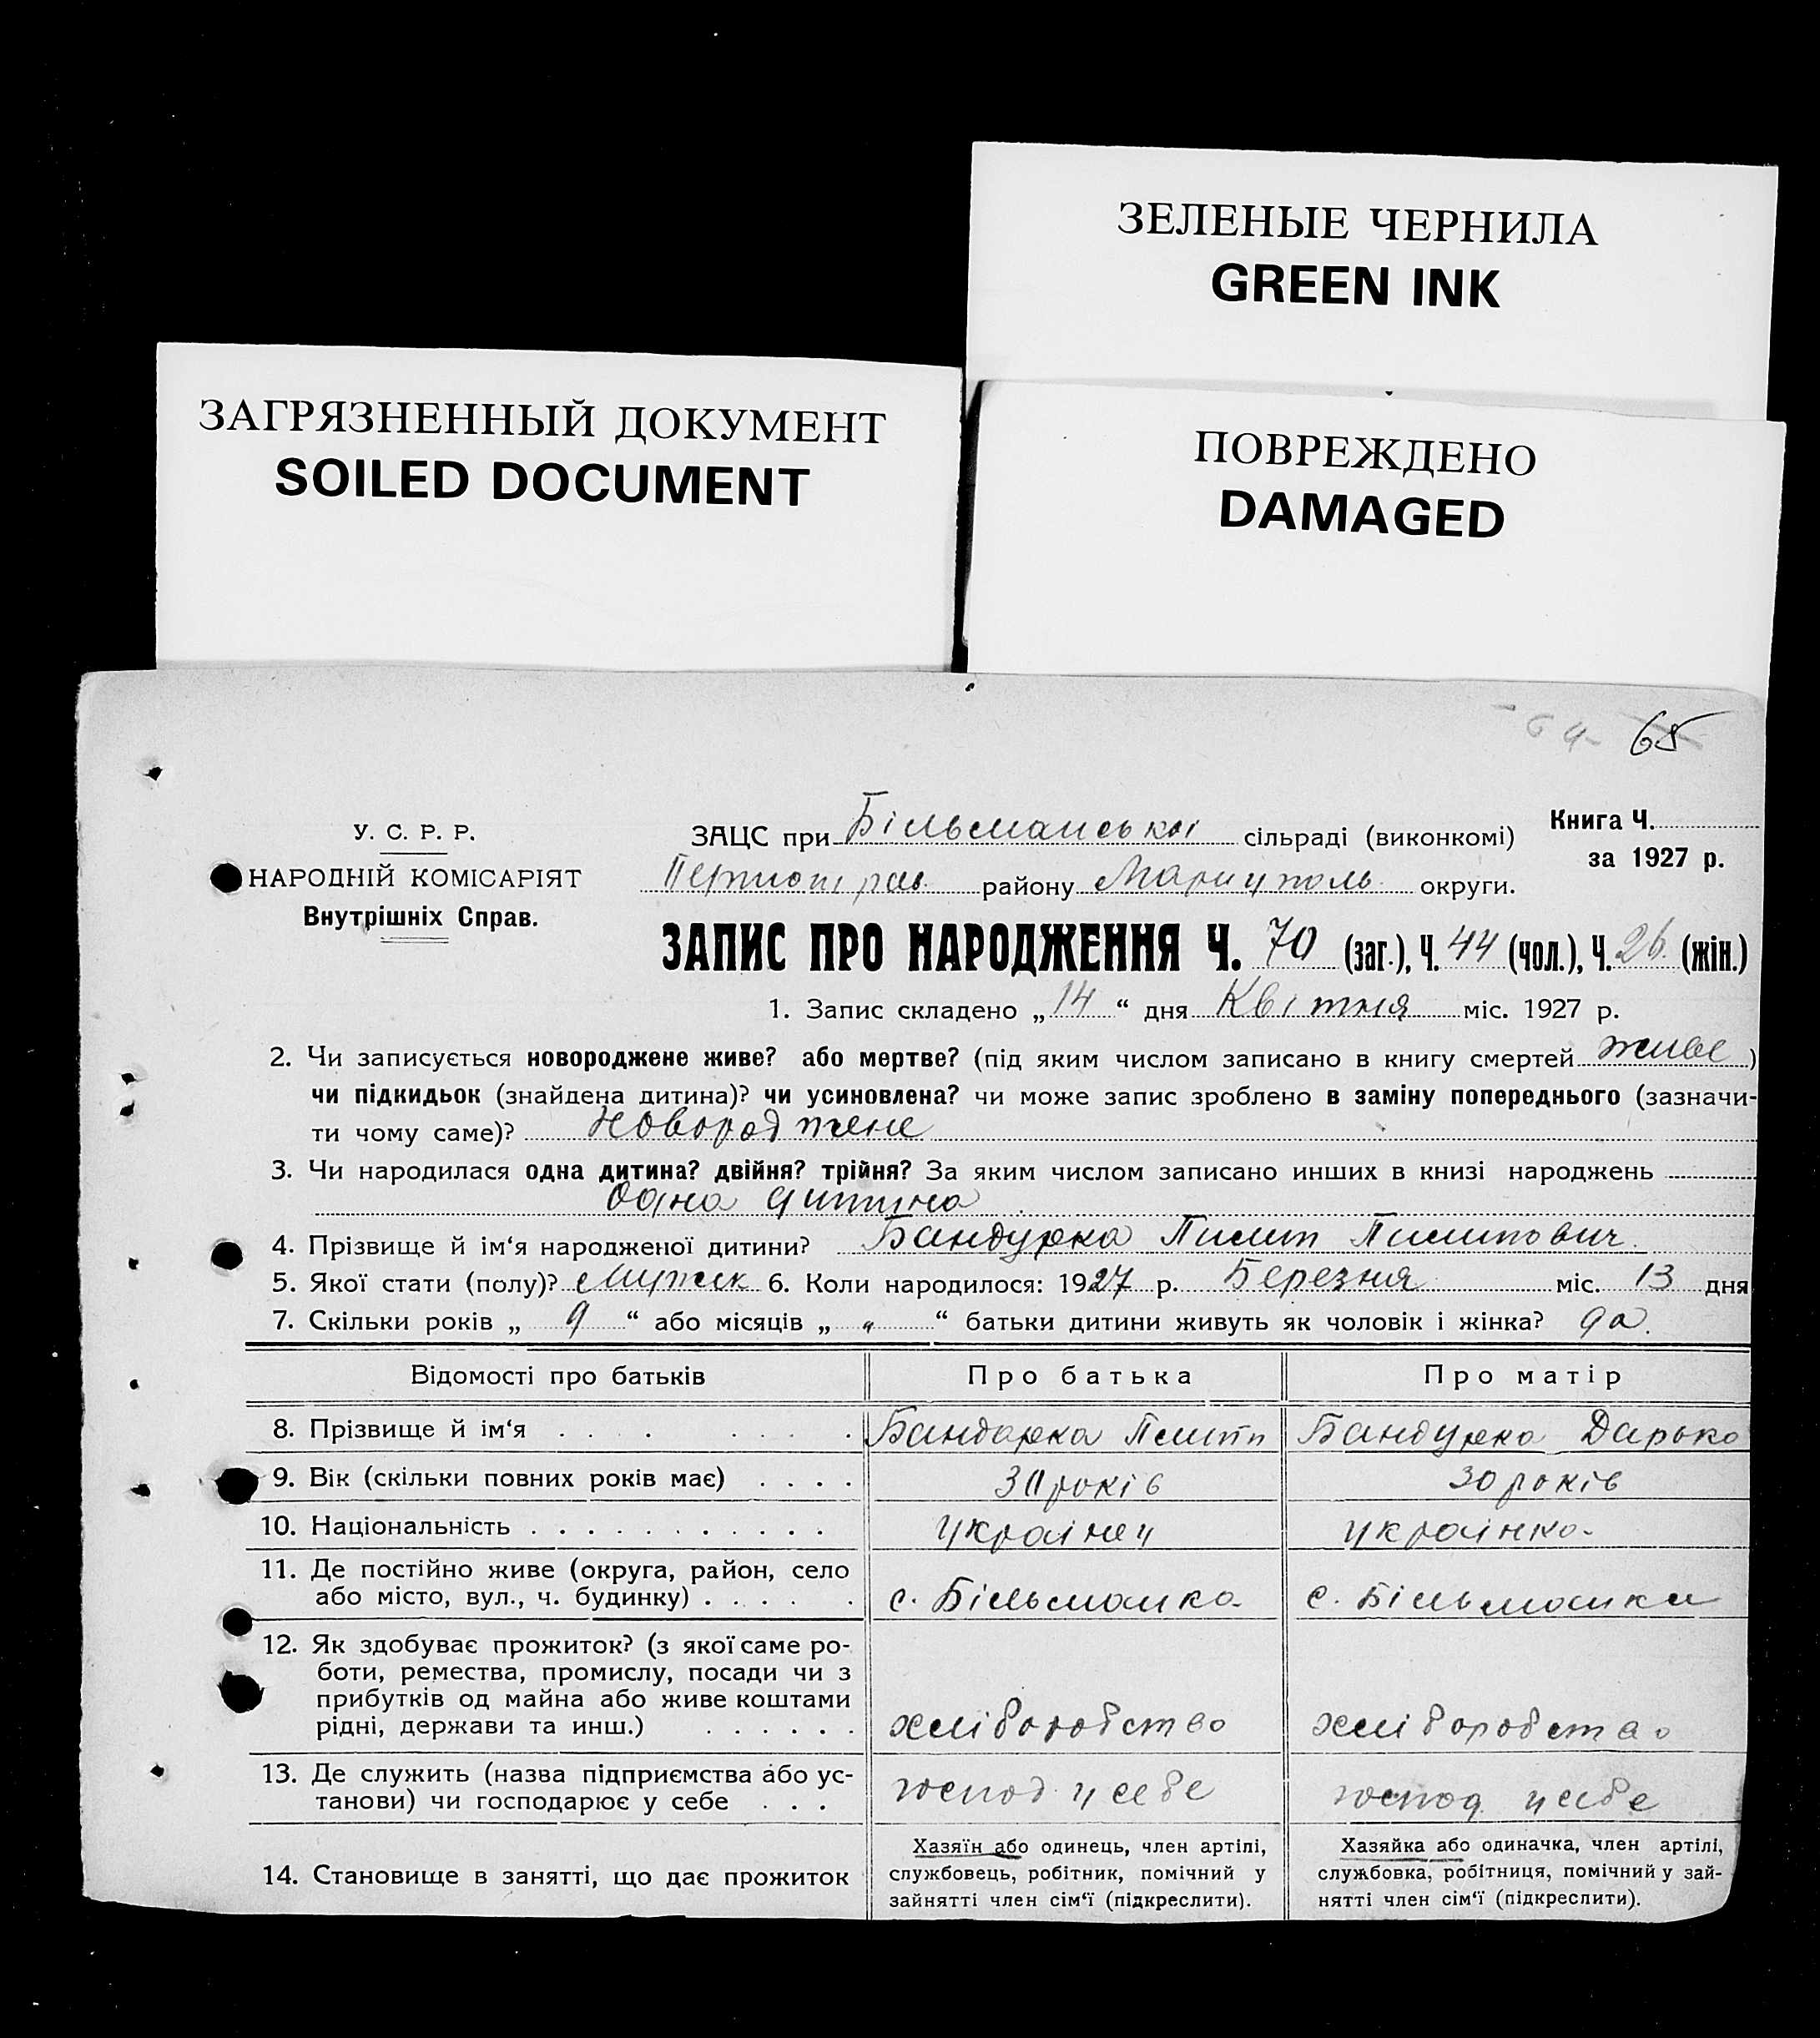 ЗЕЛЕНЫЕ ЧЕРНИЛА
GREEN INK
ЗАГРЯЗНЕННЫЙ ДОКУМЕНТ
SOILED DOCUMENT
ПОВРЕЖДЕНО
DAMAGED
64 65
У. С. Р. Р.
НАРОДНІЙ КОМІСАРІЯТ
Внутрішніх Справ.
ЗАЦС при Більманської сільраді (виконкомі)
района Маріуполь округи.
Книга Ч.
за 1927 р.
ЗАПИС ПРО НАРОДЖЕННЯ Ч. 70 (заг.), Ч. 44 (чол.), Ч. 26 (жін.)
1. Запис складено „14“ дня Квітня міс. 1927 р.
2. Чи записується новороджене живе? або мертве? (під яким числом записано в книгу смертей живе)
чи підкидьок (знайдена дитина)? чи усиновлена? чи може запис зроблено в заміну попереднього (зазначи-
ти чому саме)? Новороджене
3. Чи народилася одна дитина? двійня? трійня? За яким числом записано инших в книзі народжень
Одна дитина
4. Прізвище й ім‘я народженої дитини? Бандурка Пилип Пилипович.
5. Якої стати (полу)? Мужск 6. Коли народилося: 1927 р. Березня міс. 13 дня
7. Скільки років „ 9 “ або місяців „ „ “ батьки дитини живуть як чоловік і жінка? да.
Відомості про батьків Про батька Про матір
8. Прізвище й ім‘я Бандарка Пилип Бандурка Дарько
9. Вік (скільки повних років має) 30 років 30 років
10. Національність Украінец украінка.
11. Де постійно живе (округа, район, село
або місто, вул., ч. будинку) с. Більманка с. Більманки
12. Як здобуває прожиток? (з якої саме ро-
боти, ремества, промислу, посади чи з
прибутків од майна або живе коштами
рідні, держави та инш.) хліборобство хліборобство
13. Де служить (назва підприємства або ус-
танови) чи господарює у себе господ. у себе господ у себе
14. Становище в занятті, що дає прожиток
Хазяїн або одинець, член артілі,
службовець, робітник, помічний у
зайнятті член сім‘ї (підкреслити).
Хазяйка або одиначка, член артілі,
службовка, робітниця, помічний у зай-
нятті член сім‘ї (підкреслити).